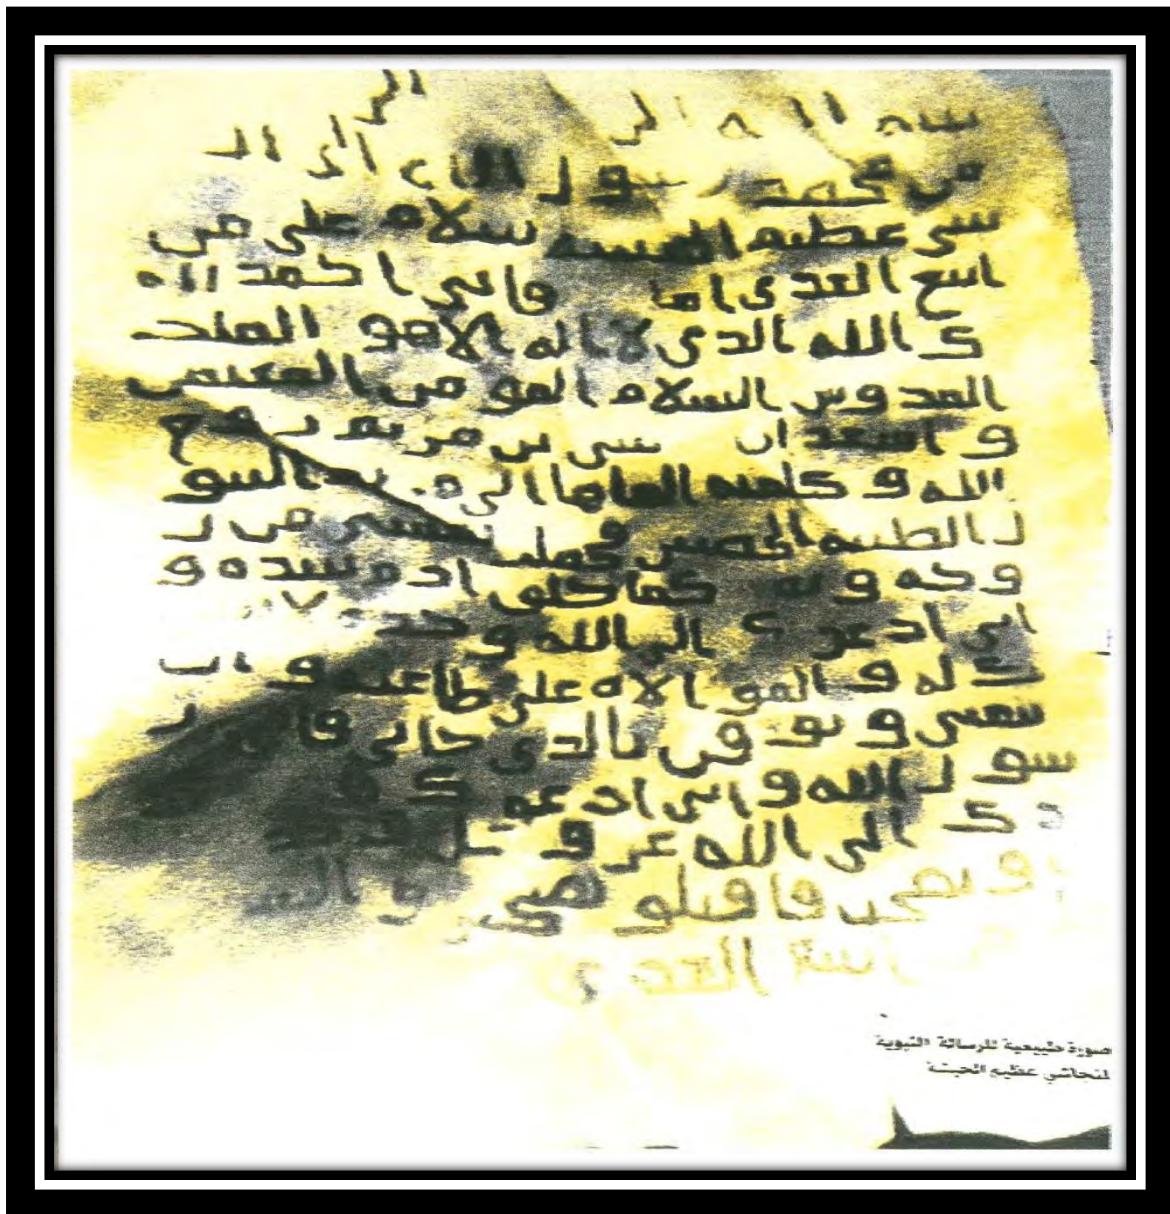 بسم الله الر
من محمد رسول الله الى ال
سى عظيم الحبسه سلام على من
اتبع الهدى اما فانى احمد ال
ك الله الذى لا اله الا هو الملك
القدوس السلام المومن المهيمن
و اشهد ان عيسى بن مريم روح
الله و كلمته القاها الى البتو
ل الطيبه الحصينه فحملت بعيسى من ر
وحه و كما خلق ادم بيده و
انى ادعوك الى الله وحده لا
ك له و الموالاه على طاعته و ان
تتبعنى و توقن بالذى جانى فانى ر
سول الله و انى ادعوك و
دك الى الله عز و جل
و نصحت فاقبلو نصحى و السلام
اتبع الهدى
صورة طبيعية للرسالة النبوية
لنجاشي عظيم الحبشة